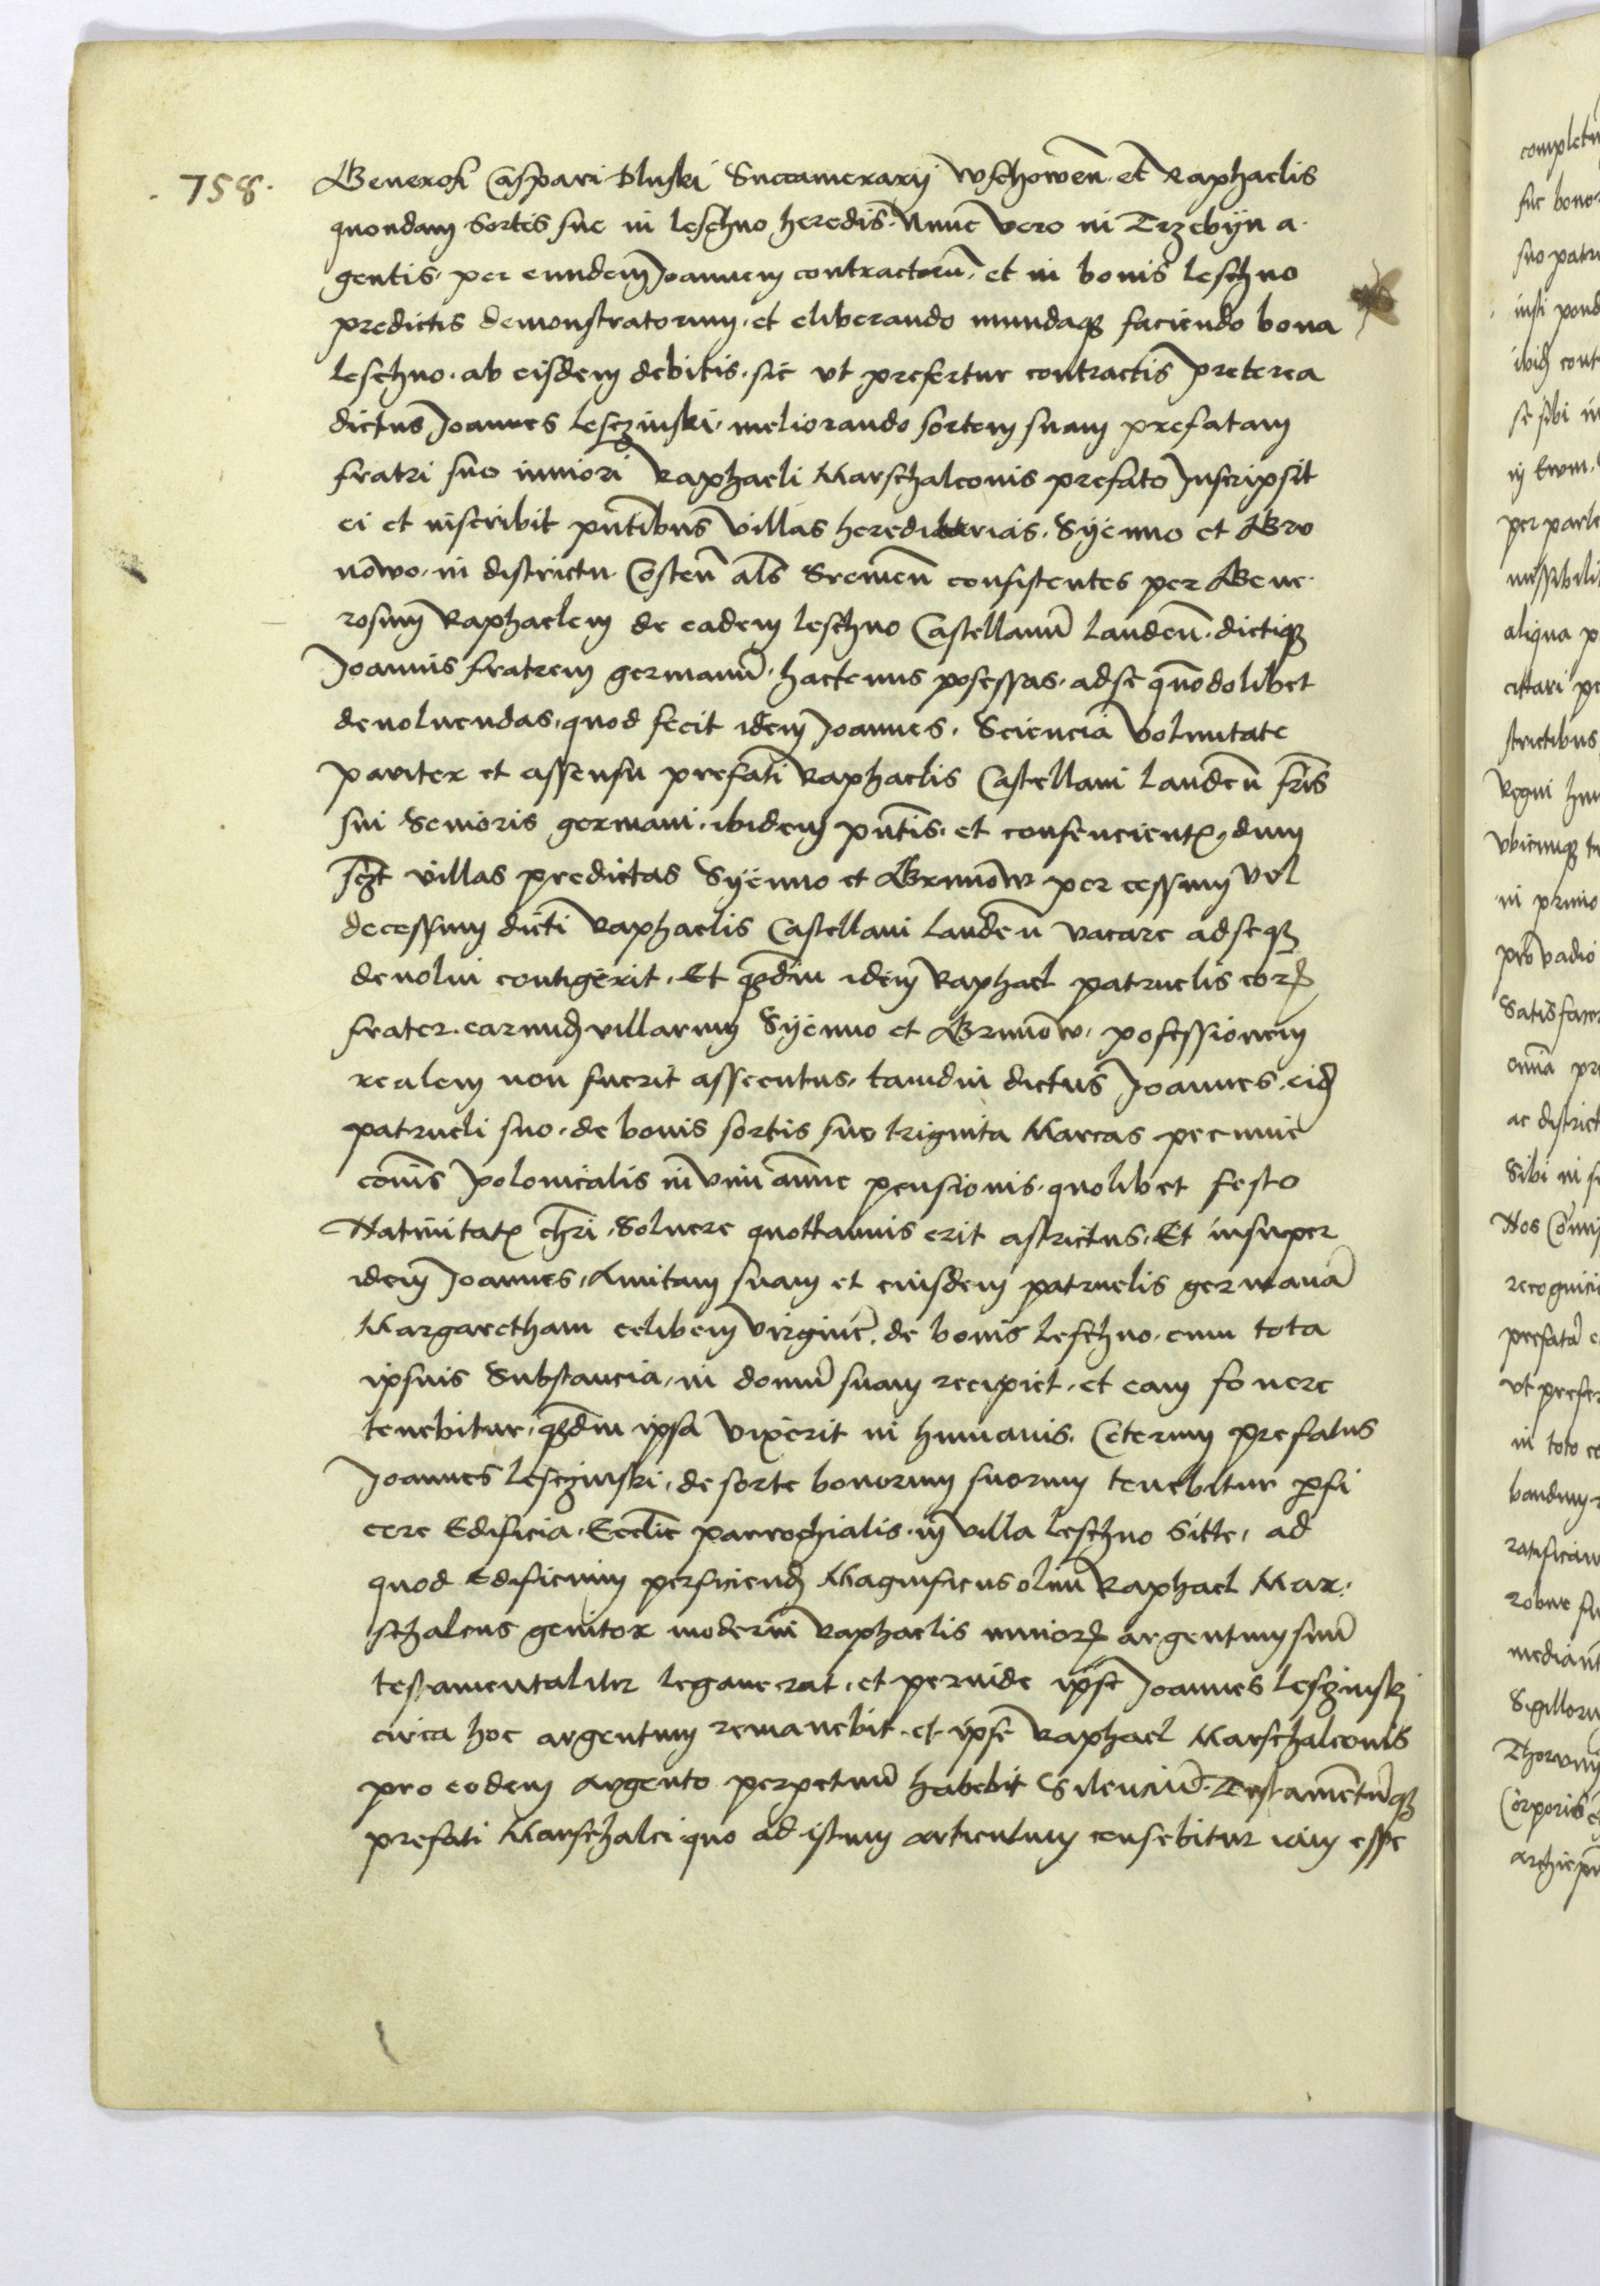 .758.
Generosi Caspari Dluski Succamerarij Wschowen̄. et Raphaelis
quondam sortis sue in leschno heredis. Nunc vero in Trzebyn a.
gentis. per eundem Joannem contractorū. et in bonis leschno
predictis demonstratorum. et eliberando mundaqꝫ faciendo bona
leschno. ab eisdem debitis. sic vt prefertur contractis Preterea
dictus Joannes lesczinski. meliorando sortem suam prefatam
fratri suo iuniori Raphaeli Marschalconis prefato Inscripsit
ei et inscribit pn̄tibus villas hereditarias. Syenno et Bru
nōwo. in districtu Costen̄ als̄ Sremen̄ consistentes per Gene.
rosum Raphaelem de eadem leschno Castellanū Landen̄. dictiqꝫ
Joannis fratrem germanū. hactenus posessas. ad se quōdolibet
deuoluendas. quod fecit idem̄ Joannes. Sciencia voluntate
pariter et assensu prefati Raphaelis Castellani Landen̄ fr̄is
sui Senioris germani. ibidem pn̄tis. et consencientꝭ, dum
sc̄ꝫt villas predictas Syenno et Brunōw per cessum vel
decessum dicti Raphaelis Castellani Landen̄ vacare ad seqꝫ
deuolui contigerit. Et qꝫdiu idem̄ Raphael patruelis eorꝝ
frater. earundꝫ villarum Syenno et Brunōw. possessionem
realem non fuerit assecutus. tamdiu dictus Joannes. eidꝫ
patrueli suo. de bonis sortis sue triginta Marcas pecunie
com̄is Polonicalis in vim anne pensionis. quolibet festo
Natiuitatꝭ chr̄i. Soluere quottannis erit astrictus. Et insuper
idem̄ Joannes. Amitam suam et eiusdem patruelis germanā
Margaretham celibem virginē. de bonis leschno. cum tota
ipsius Substancia. in domū suam recipiet. et eam fouere
tenebitur. qꝫdiu ipsa vixerit in humanis. Ceterum prefatus
Joannes lesczinski. de sorte bonorum suorum tenebitur ꝑfi
cere Edificia. Eccl̄ie parrochialis. in villa leschno Sitte. ad
quod Edificium perficiendꝫ Magnificus olim Raphael Mar.
schalcus genitor moderni Raphaelis iuniorꝭ argentum suū
testamentaliter legauerat. et perinde ipse Joannes lesczinski
circa hoc argentum remanebit. et ipse Raphael Marschalconis
pro eodem argento perpetuū habebit Silenciū. Testamentūqꝫ
prefati Marschalci quo ad istum articulum censebitur iam esse